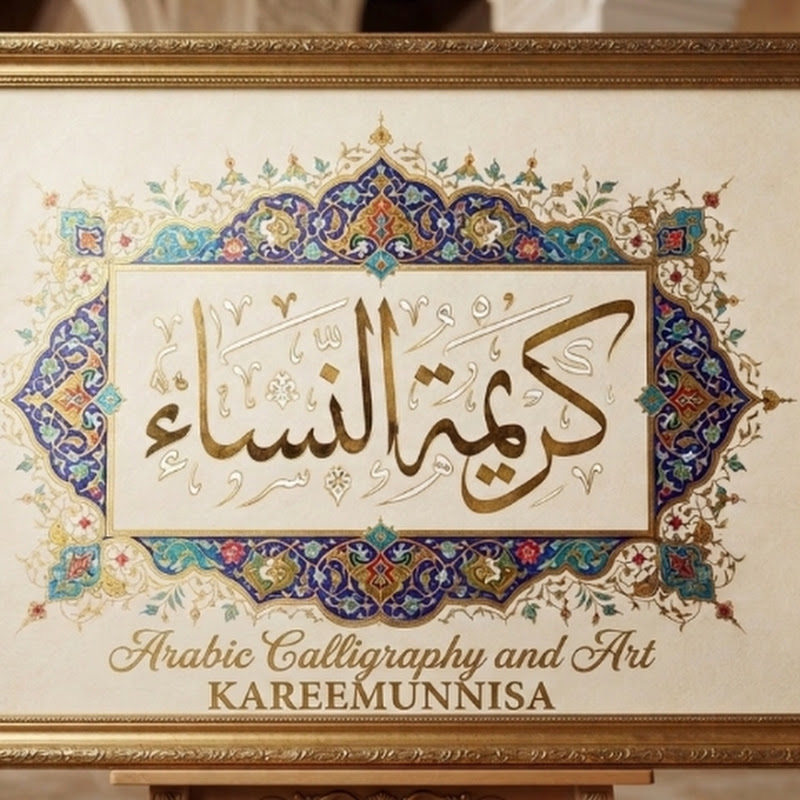 كريمة النساء
Arabic Calligraphy and Art
KAREEMUNNISA